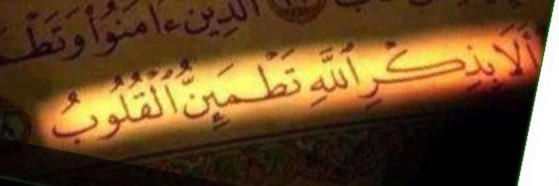 ٱلَّذِينَ ءَامَنُوا۟ وَتَطْمَ
أَلَا بِذِكْرِ ٱللَّهِ تَطْمَئِنُّ ٱلْقُلُوبُ